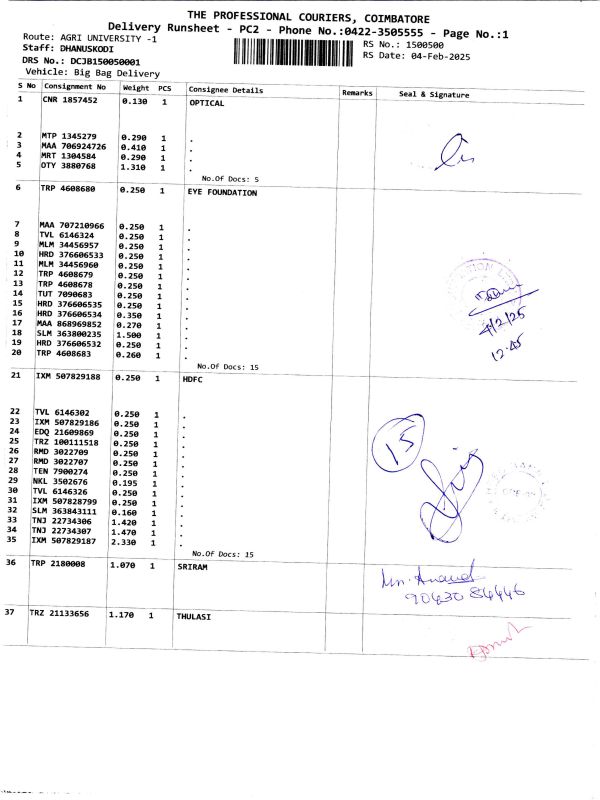 THE PROFESSIONAL COURIERS, COIMBATORE
Delivery Runsheet - PC2 - Phone No.:0422-3505555 - Page No.:1
Route: AGRI UNIVERSITY -1
RS No.: 1500500
Staff: DHANUSKODI
RS Date: 04-Feb-2025
DRS No.: DCJB150050001
Vehicle: Big Bag Delivery
S No Consignment No Weight PCS Consignee Details Remarks Seal & Signature
1 CNR 1857452 0.130 1 OPTICAL
2 MTP 1345279 0.290 1 .
3 MAA 706924726 0.410 1 .
4 MRT 1304584 0.290 1 .
5 OTY 3880768 1.310 1 .
No.Of Docs: 5
6 TRP 4608680 0.250 1 EYE FOUNDATION
7 MAA 707210966 0.250 1 .
8 TVL 6146324 0.250 1 .
9 MLM 34456957 0.250 1 .
10 HRD 376606533 0.250 1 .
11 MLM 34456960 0.250 1 .
12 TRP 4608679 0.250 1 .
13 TRP 4608678 0.250 1 .
14 TUT 7090683 0.250 1 .
15 HRD 376606535 0.250 1 .
16 HRD 376606534 0.350 1 .
17 MAA 868969852 0.270 1 .
18 SLM 363800235 1.500 1 .
19 HRD 376606532 0.250 1 .
20 TRP 4608683 0.260 1 .
4/2/25
12.45
No.Of Docs: 15
21 IXM 507829188 0.250 1 HDFC
22 TVL 6146302 0.250 1 .
23 IXM 507829186 0.250 1 .
24 EDQ 21609869 0.250 1 .
25 TRZ 100111518 0.250 1 .
26 RMD 3022709 0.250 1 .
27 RMD 3022707 0.250 1 .
28 TEN 7900274 0.250 1 .
29 NKL 3502676 0.195 1 .
30 TVL 6146326 0.250 1 .
31 IXM 507828799 0.250 1 .
32 SLM 363843111 0.160 1 .
33 TNJ 22734306 1.420 1 .
34 TNJ 22734307 1.470 1 .
35 IXM 507829187 2.330 1 .
15
No.Of Docs: 15
36 TRP 2180008 1.070 1 SRIRAM
Mr. Anand
90430 84446
37 TRZ 21133656 1.170 1 THULASI